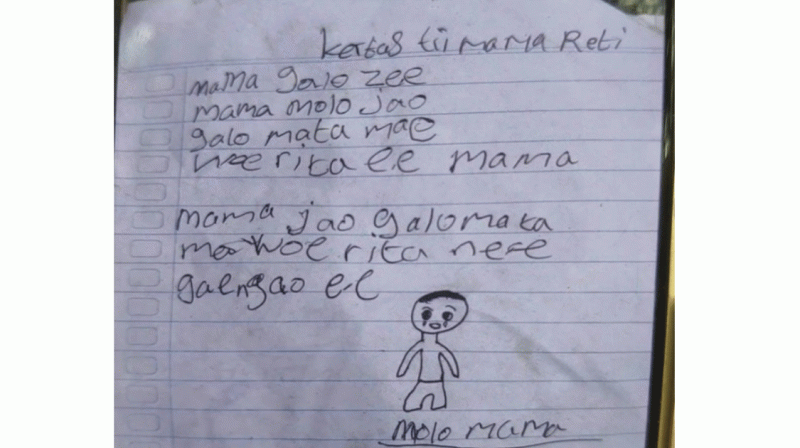 kertas tii mama Reti
mama galo zee
mama molo jao
galo mata mae
woe rita ee mama
mama jao galo mata
mae woe rita ne'e
gae ngao ee
molo mama